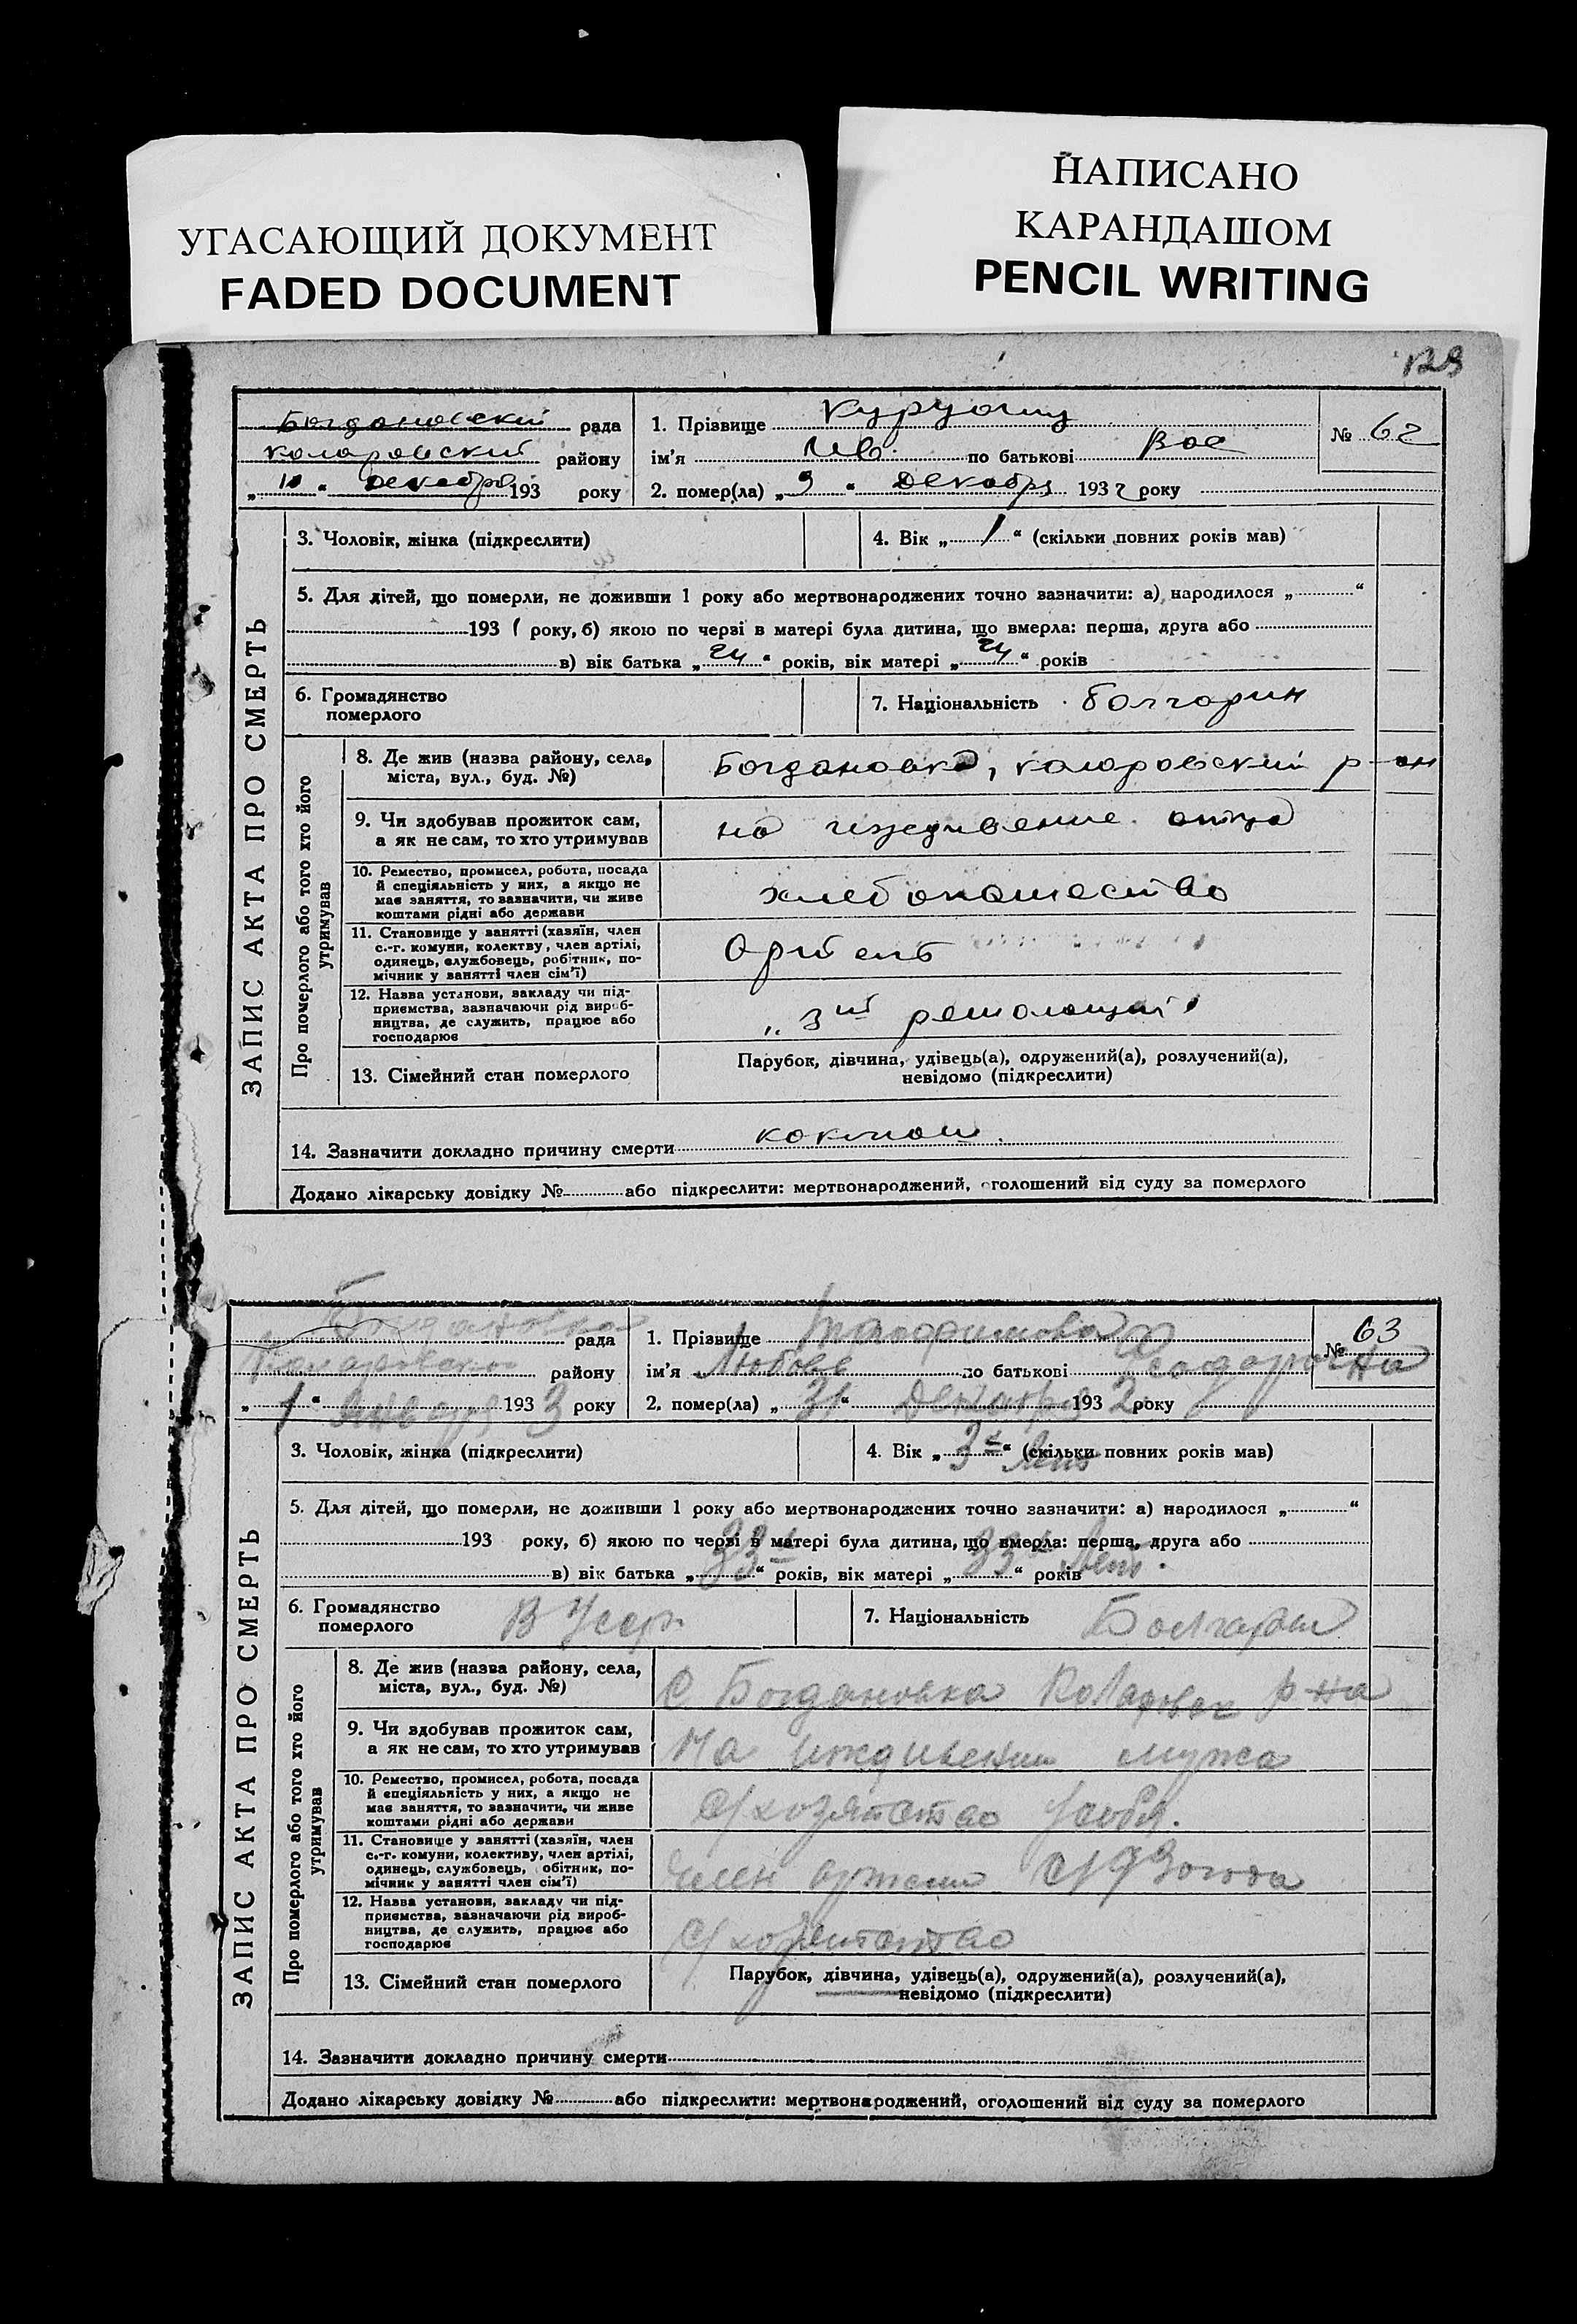 УГАСАЮЩИЙ ДОКУМЕНТ
FADED DOCUMENT
НАПИСАНО
КАРАНДАШОМ
PENCIL WRITING
129
Богдановский рада
Коларовский району
„10“ декабря 193 року
1. Прізвище
ім’я Ив. по батькові Вас
2. помер(ла) „9“ декабря 1932 року
№ 62
ЗАПИС АКТА ПРО СМЕРТЬ
3. Чоловік, жінка (підкреслити)
4. Вік „1“ (скільки повних років мав)
5. Для дітей, що померли, не доживши 1 року або мертвонароджених точно зазначити: а) народилося „ “
193 року, б) якою по черзі в матері була дитина, що вмерла: перша, друга або
в) вік батька „24“ років, вік матері „24“ років
6. Громадянство
померлого
7. Національність болгарин
Про померлого або того хто його
утримував
8. Де жив (назва району, села,
міста, вул., буд. №)
Богдановка, коларовский р-он
9. Чи здобував прожиток сам,
а як не сам, то хто утримував
на иждивение отца
10. Ремество, промисел, робота, посада
й спеціяльність у них, а якщо не
має заняття, то зазначити, чи живе
коштами рідні або держави
хлебопашество
11. Становище у занятті (хазяїн, член
с.-г. комуни, колектву, член артілі,
одинець, службовець, робітник, по-
мічник у занятті член сім’ї)
Артель
12. Назва установи, закладу чи під-
приємства, зазначаючи рід вироб-
ництва, де служить, працює або
господарює
„3ий решающий“
13. Сімейний стан померлого
Парубок, дівчина, удівець(а), одружений(а), розлучений(а),
невідомо (підкреслити)
14. Зазначити докладно причину смерти коклюш.
Додано лікарську довідку № або підкреслити: мертвонароджений, оголошений від суду за померлого
Богдановка рада
Коларовского району
„1“ января 1933 року
1. Прізвище
ім’я Любовь по батькові Феодоровна
2. помер(ла) „31“ декабря 1932 року
№ 63
ЗАПИС АКТА ПРО СМЕРТЬ
3. Чоловік, жінка (підкреслити)
4. Вік „3х“ лет (скільки повних років мав)
5. Для дітей, що померли, не доживши 1 року або мертвонароджених точно зазначити: а) народилося „ “
193 року, б) якою по черзі в матері була дитина, що вмерла: перша, друга або
в) вік батька „33“ років, вік матері „33“ років лет.
6. Громадянство
померлого
7. Національність
Про померлого або того хто його
утримував
8. Де жив (назва району, села,
міста, вул., буд. №)
С Богдановка Коларовск р-на
9. Чи здобував прожиток сам,
а як не сам, то хто утримував
На иждивении мужа
10. Ремество, промисел, робота, посада
й спеціяльність у них, а якщо не
має заняття, то зазначити, чи живе
коштами рідні або держави
С/хозяйство
11. Становище у занятті (хазяїн, член
с.-г. комуни, колективу, член артілі,
одинець, службовець, обітник, по-
мічник у занятті член сім’ї)
член артели
12. Назва установи, закладу чи під-
приємства, зазначаючи рід вироб-
ництва, де служить, працює або
господарює
С/хозяйство
13. Сімейний стан померлого
Парубок, дівчина, удівець(а), одружений(а), розлучений(а),
невідомо (підкреслити)
14. Зазначити докладно причину смерти
Додано лікарську довідку № або підкреслити: мертвонароджений, оголошений від суду за померлого